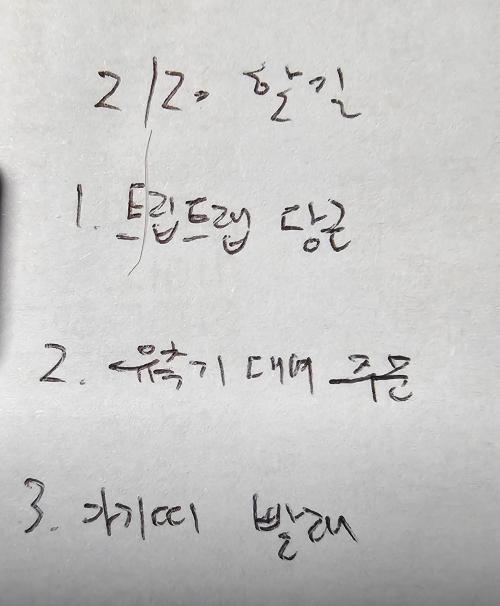 2/2. 할일
1. 트립트랩 당근
2. 유축기 대여 주문
3. 아기띠 빨래